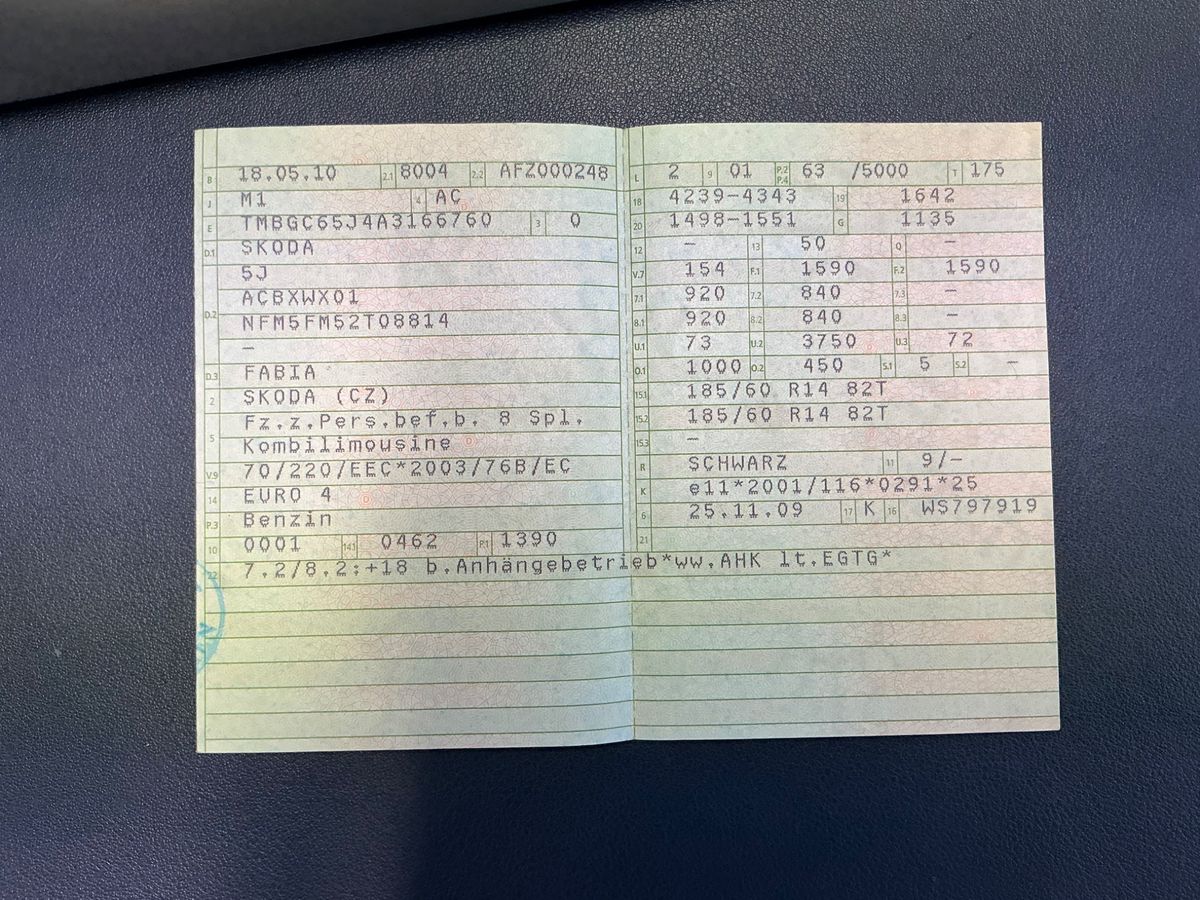 B 18.05.10 2.1 8004 2.2 AFZ000248
J M1 4 AC
E TMBGC65J4A3166760 3 0
D.1 SKODA
5J
D.2 ACBXWX01
NFM5FM52T08814
–
D.3 FABIA
2 SKODA (CZ)
5 Fz.z.Pers.bef.b. 8 Spl.
Kombilimousine
V.9 70/220/EEC*2003/76B/EC
14 EURO 4
P.3 Benzin
10 0001 14.1 0462 P.1 1390
L 2 9 01 P.2 P.4 63 /5000 T 175
18 4239-4343 19 1642
20 1498-1551 G 1135
12 – 13 50 Q –
V.7 154 F.1 1590 F.2 1590
7.1 920 7.2 840 7.3 –
8.1 920 8.2 840 8.3 –
U.1 73 U.2 3750 U.3 72
O.1 1000 O.2 450 S.1 5 S.2 –
15.1 185/60 R14 82T
15.2 185/60 R14 82T
15.3 –
R SCHWARZ 11 9/-
K e11*2001/116*0291*25
6 25.11.09 17 K 16 WS797919
21
22 7.2/8.2:+18 b.Anhängebetrieb*ww.AHK lt.EGTG*